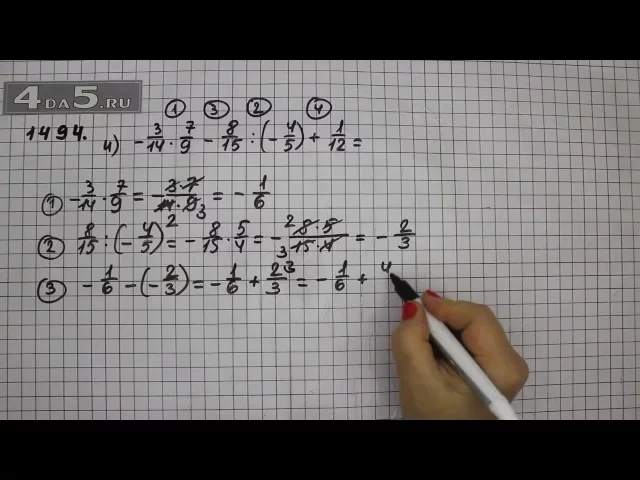 4DA5.RU
① ③ ② ④
1494. и) -3/14 · 7/9 - 8/15 : (-4/5) + 1/12 =
① -3/14 · 7/9 = -3·7/14·9 2 3 = -1/6
② 8/15 : (-4/5) = -8/15 · 5/4 = -8·5/15·4 2 3 = -2/3
③ -1/6 - (-2/3) = -1/6 + 2/3 = -1/6 + 4